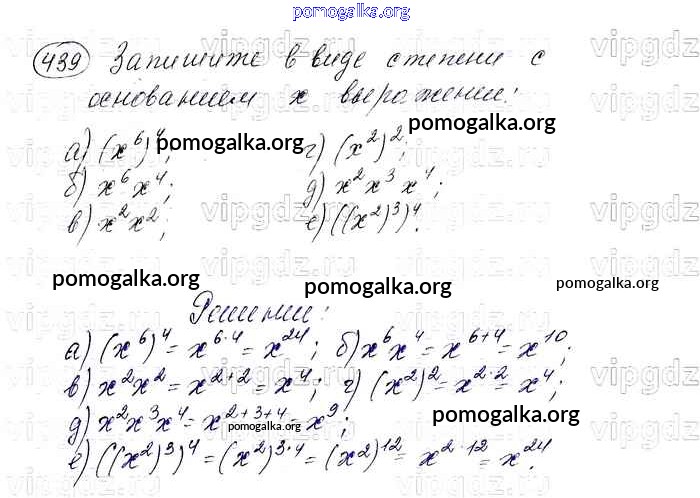 pomogalka.org
439 Запишите в виде степени с
основанием x выражении:
а) (x⁶)⁴; г) (x²)²;
pomogalka.org pomogalka.org
б) x⁶x⁴; д) x²x³x⁴;
в) x²x²; е) ((x²)³)⁴.
pomogalka.org pomogalka.org pomogalka.org
Решении:
а) (x⁶)⁴ = x⁶·⁴ = x²⁴; б) x⁶x⁴ = x⁶⁺⁴ = x¹⁰;
в) x²x² = x²⁺² = x⁴; г) (x²)² = x²·² = x⁴;
д) x²x³x⁴ = x²⁺³⁺⁴ = x⁹;
pomogalka.org pomogalka.org
е) ((x²)³)⁴ = (x²)³·⁴ = (x²)¹² = x²·¹² = x²⁴.